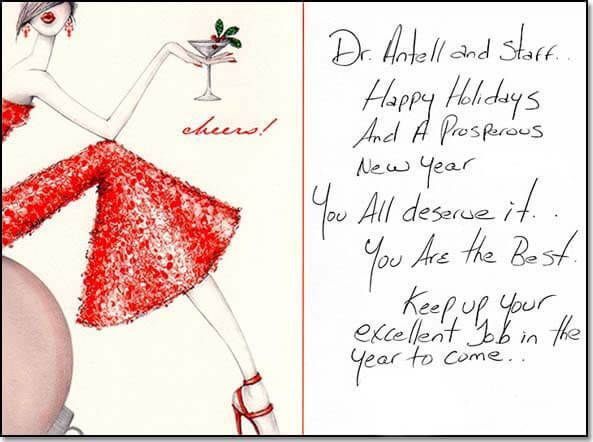 cheers!
Dr. Antell and Staff..
Happy Holidays
And A Prosperous
New Year
You All deserve it..
You Are the Best.
Keep up your
excellent Job in the
year to come..